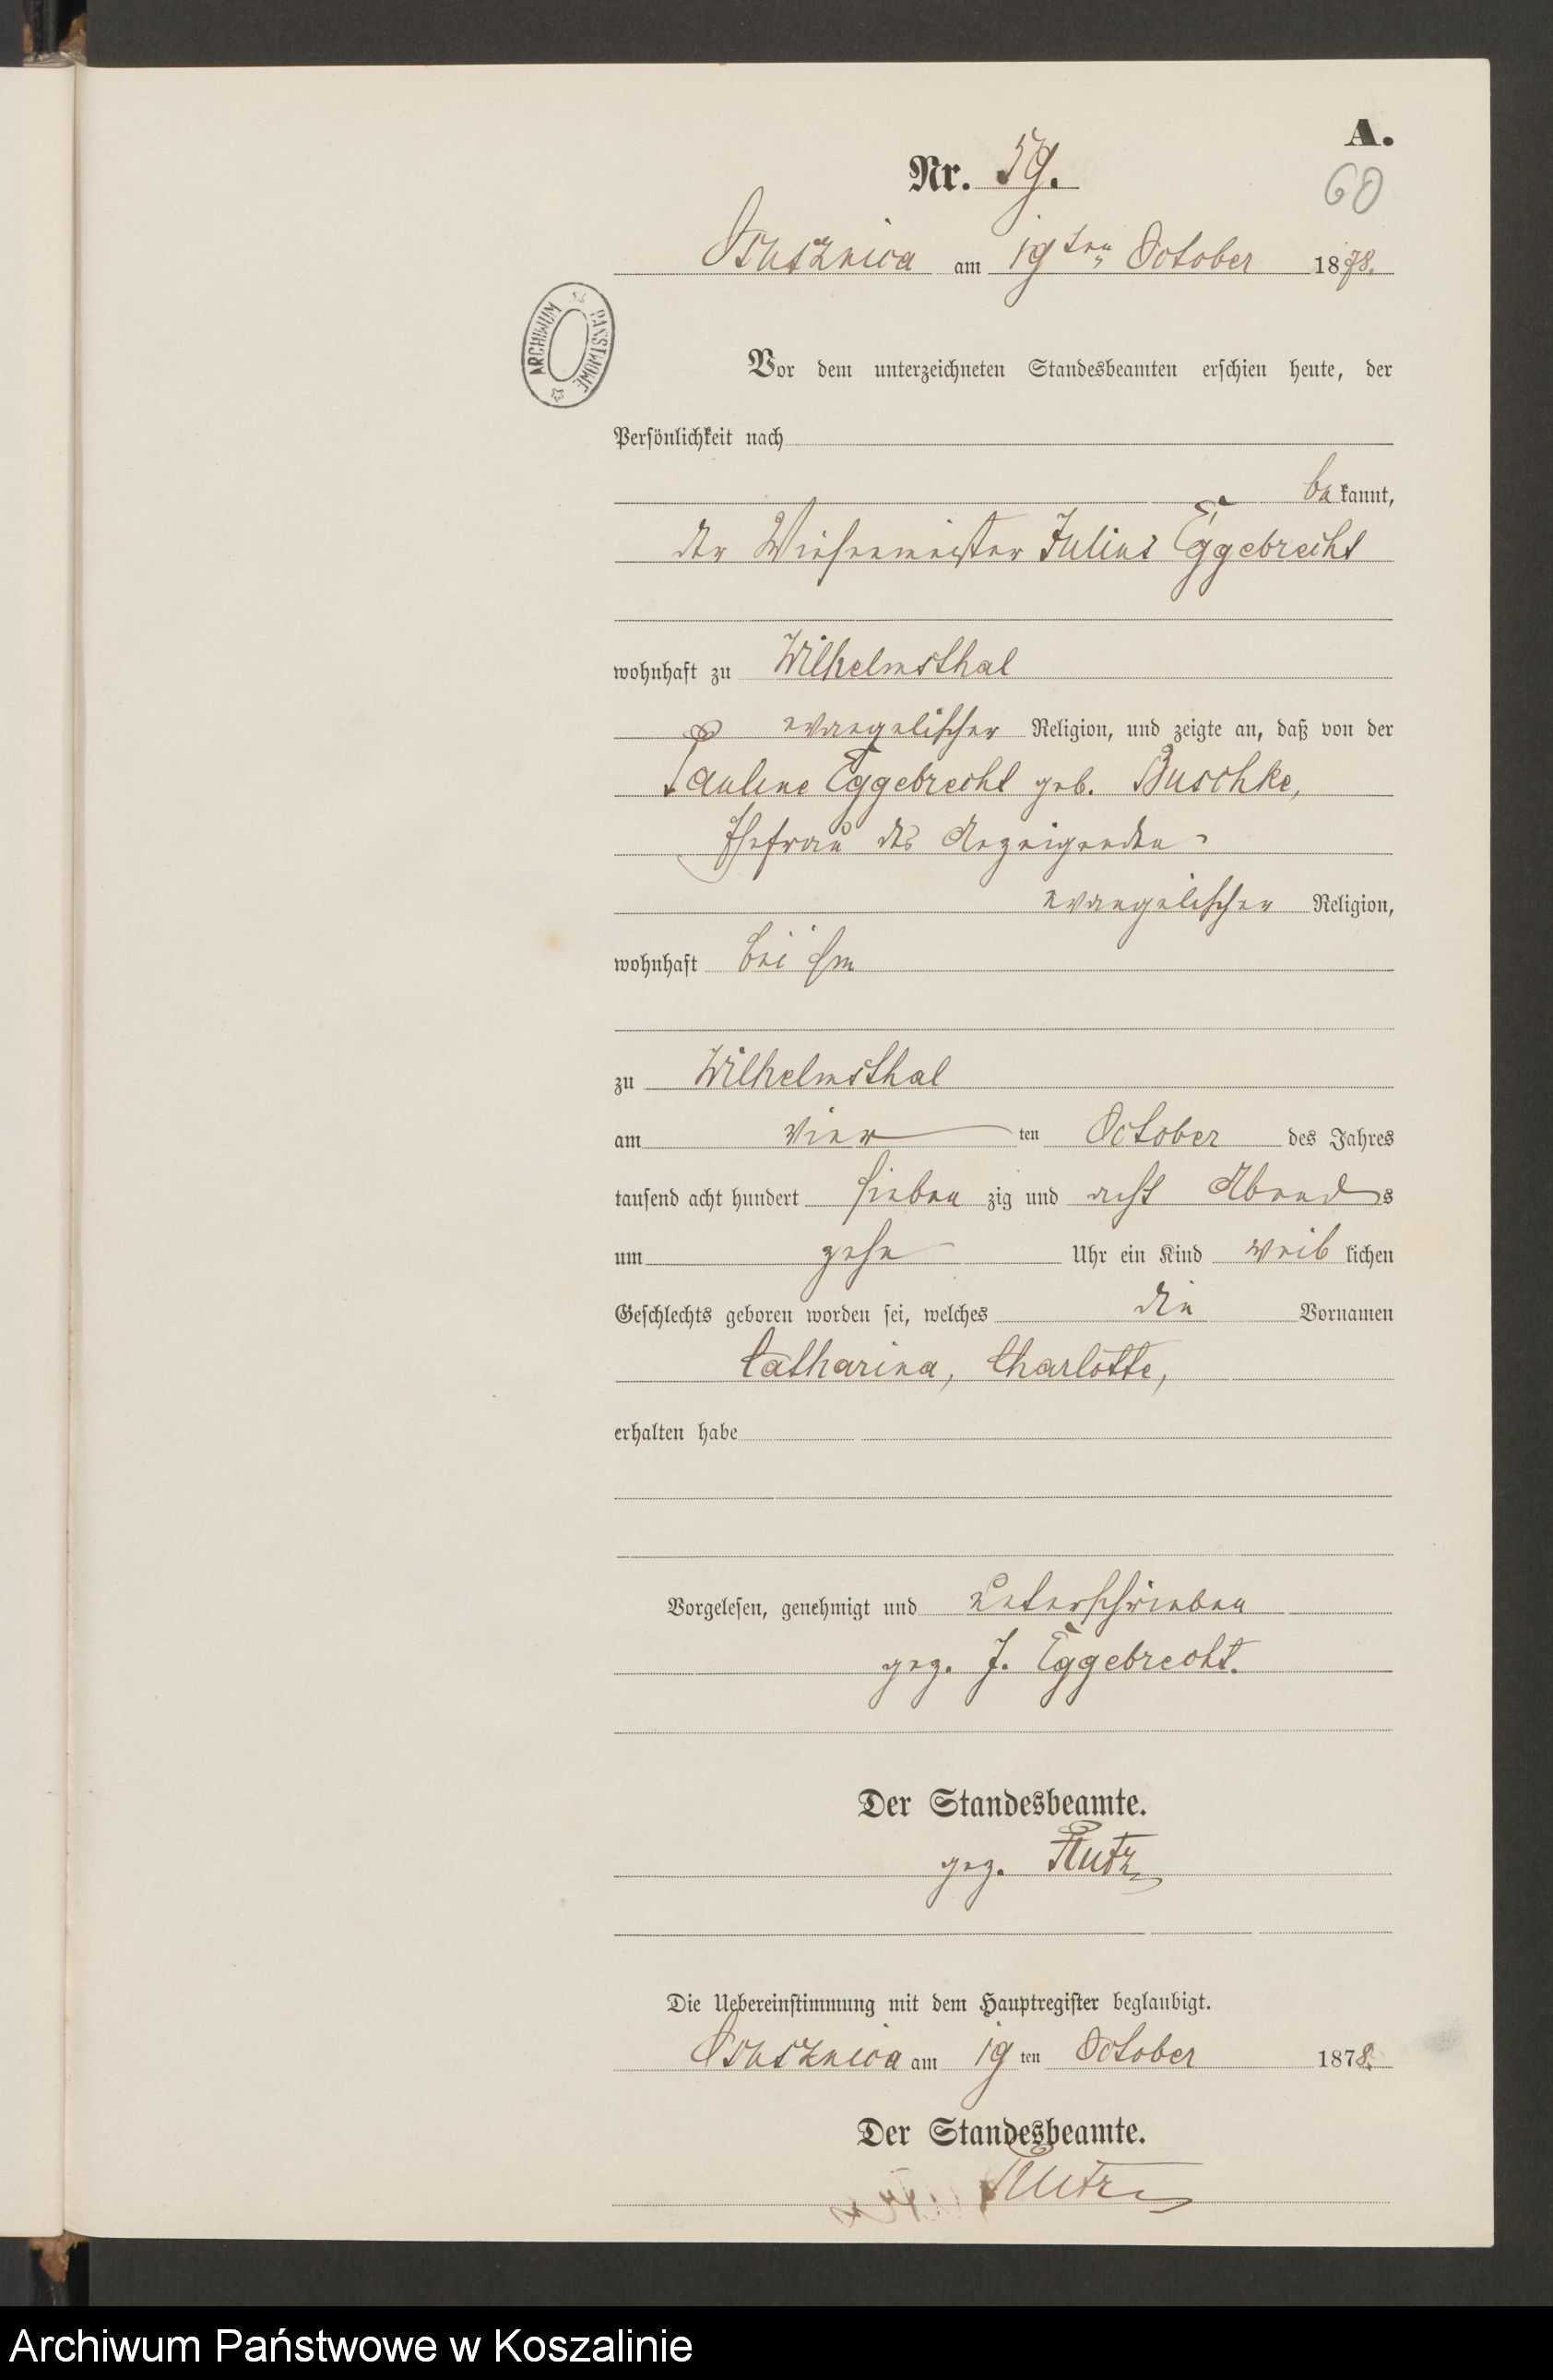 A.
Nr. 59.
60
Ossusznica am 19ten October 1878.
ARCHIWUM PAŃSTWOWE
Vor dem unterzeichneten Standesbeamten erschien heute, der
Persönlichkeit nach
be kannt,
der Wiesenmeister Julius Eggebrecht
wohnhaft zu Wilhelmsthal
evangelischer Religion, und zeigte an, daß von der
Pauline Eggebrecht geb. Buschke,
Ehefrau des Anzeigenden
evangelischer Religion,
wohnhaft bei ihm
zu Wilhelmsthal
am vier ten October des Jahres
tausend acht hundert sieben zig und acht Abends
um zehn Uhr ein Kind weib lichen
Geschlechts geboren worden sei, welches die Vornamen
Catharina, Charlotte,
erhalten habe
Vorgelesen, genehmigt und unterschrieben
gez. J. Eggebrecht.
Der Standesbeamte.
gez. Rutz
Die Uebereinstimmung mit dem Hauptregister beglaubigt.
Ossusznica am 19 ten October 1878.
Der Standesbeamte.
Rutz
Archiwum Państwowe w Koszalinie